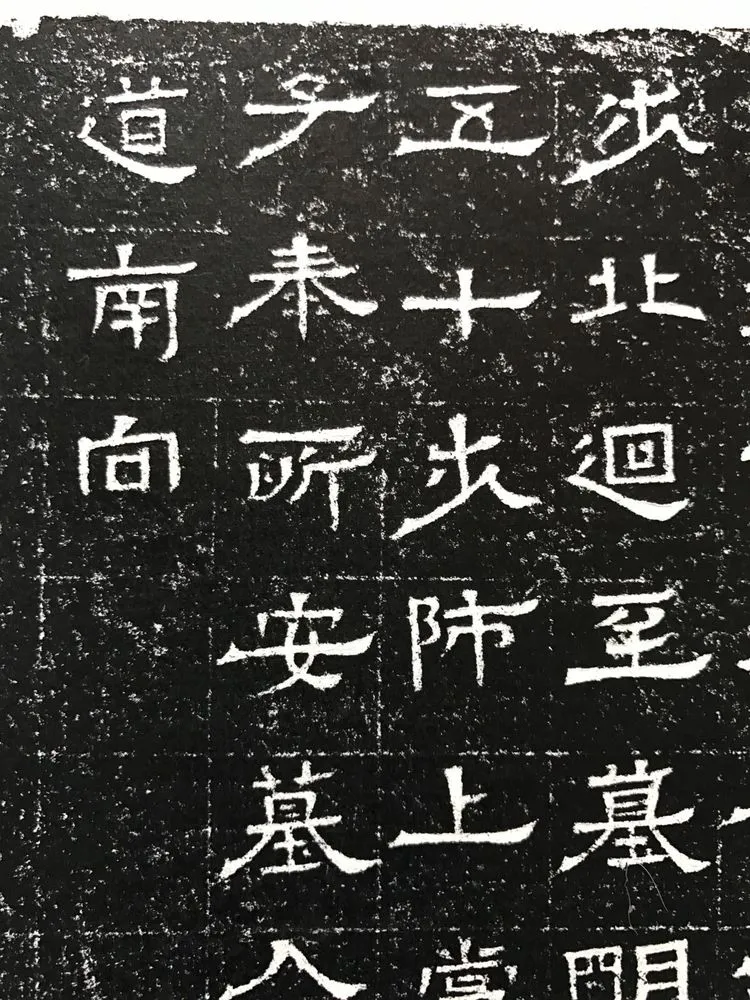 步北迴至墓門
五十步師上
子奉所安墓入
道南向